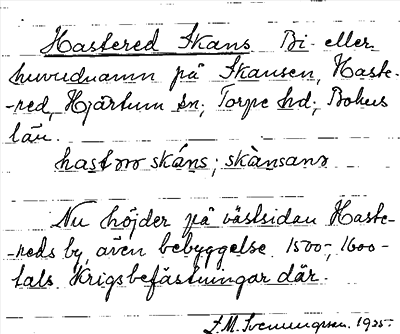 Hastered Skans Bi- eller
huvudnamn på Skansen, Haste-
-red, Hjärtum sn; Torpe hd; Bohus
län.
skáns; skànsanə
Nu höjder på västsidan Haste-
-reds by, även bebyggelse. 1500-, 1600-
tals Krigsbefästningar där.
1925.